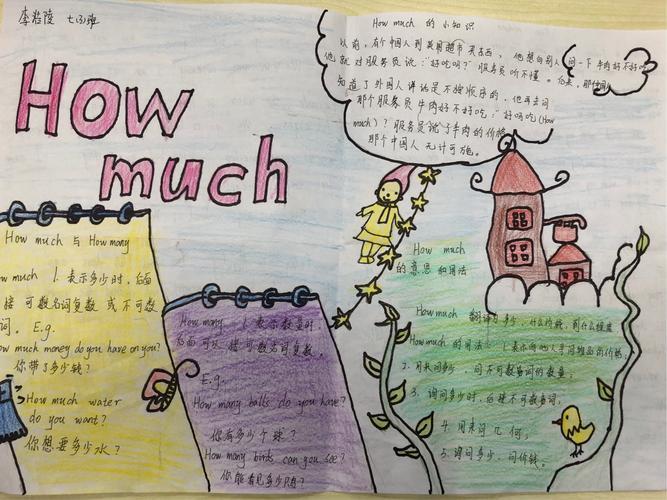 李若陵 七(3)班
How much
How much 的小知识
以前,有个中国人到英国超市买东西,他想向别人问一下牛肉好不好吃
他就对服务员说:“好吃吗?”服务员听不懂。后来,那位
知道了外国人讲话是不按顺序的,他再去问
那个服务员牛肉好不好吃:“好吗吃(How
much)?服务员说了牛肉的价格
那个中国人无计可施。
How much 与 How many
much 1. 表示多少时,后面
接可数名词复数或不可数
词。E.g.
How much money do you have on you?
你带了多少钱?
How much water
do you want?
你想要多少水?
How many 1. 表示数量时,
后面可以接可数名词复数。
E.g.
How many balls do you have?
你有多少个球?
How many birds can you see?
你能看见多少
How much
的意思和用法
How much 翻译为多少,什么价钱,到什么程度
How much 的用法 1. 表示向他人询问商品的价格,
2. 用来问多少,问不可数名词的数量;
3. 询问多少时,后接不可数名词,
4. 用来问几何;
5. 询问多少,问价钱。